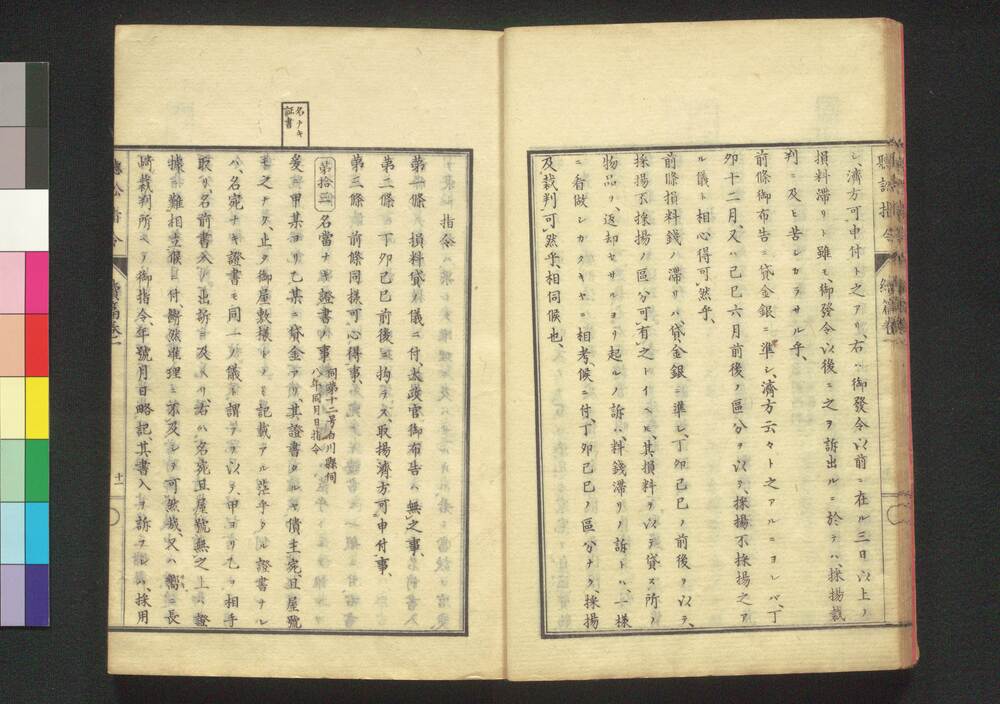 聽訟指令 續篇卷一
シ、濟方可申付ト之アリ、右ハ御發令以前ニ在ル三日以上ノ
損料滯リト雖モ、御發令以後ニ之ヲ訴出ルニ於テハ、採揚裁
判ニ及ヒ苦シカラサル乎、
前條御布告ニ貸金銀ニ準シ、濟方云々ト之アルニヨレバ、丁
卯十二月、又ハ己巳六月前後ノ區分ヲ以テ、採揚不採揚之ア
ル儀ト相心得可然乎、
前條損料錢ノ滯リハ貸金銀ニ準シ、丁卯己巳ノ前後ヲ以テ、
採揚不採揚ノ區分可有之トイヘ𪜈、其損料ヲ以テ貸ス所ノ
物品ヲ、返却セサルヨリ起ルノ訴ハ、料錢滯リノ訴トハ、一樣
ニ看做シカタキヤニ相考候ニ付、丁卯己巳ノ區分ナク、採揚
及裁判可然乎、相伺候也、
指令
第一條 損料貸ノ儀ニ付、太政官御布告ハ無之事、
第二條 丁卯己巳前後ニ拘ラス、取揚濟方可申付事、
第三條 前條同樣可心得事、
名ナキ
証書
第拾三 名當ナキ證書ノ事 伺第十二号白川縣伺
八年同月日指令
爰ニ甲某ヨリ乙某ニ貸金アリ、其證書タルヤ債主宛且屋號
モ之ナク、止タ御屋敷樣トノミ記載アル茫乎タル證書ナル
ハ、名宛ナキ證書モ同一ノ儀ト謂フヲ以テ、甲ヨリ乙ヲ相手
取リ、名前書入リ出訴ニ及メリ、右ハ名宛且屋號無之上ハ證
據ニ難相立候ニ付、斷然准理ニ不及シテ可然哉、又ハ嚮ニ長
崎裁判所ヨリ御指令、年號月日略記其書入ヲ訴フレハ、採用
聽訟指令 續篇卷一 十一